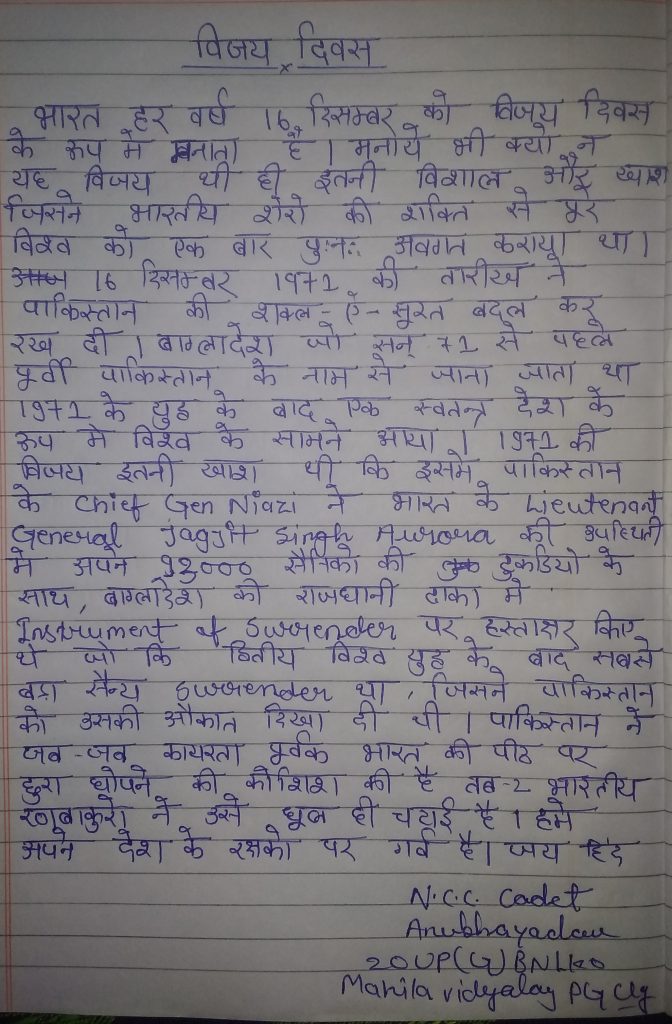 विजय दिवस
भारत हर वर्ष 16 दिसम्बर को विजय दिवस
के रूप में मनाता है। मनाये भी क्यो न
यह विजय थी ही इतनी विशाल और खाश
जिसने भारतीय शेरो की शक्ति से पूरे
विश्व को एक बार पुःनः अवगत कराया था।
16 दिसम्बर 1971 की तारीख ने
पाकिस्तान की शक्ल-ऐ-सूरत बदल कर
रख दी। बाग्लादेश जो सन् 71 से पहले
पूर्वी पाकिस्तान के नाम से जाना जाता था
1971 के युद्ध के बाद एक स्वतन्त्र देश के
रूप मे विश्व के सामने आया। 1971 की
विजय इतनी खाश थी कि इसमे पाकिस्तान
के Chief Gen Niazi ने भारत के Lieutenant
General Jagjit Singh Aurora की उपस्थिती
मे अपने 93000 सैनिको की टुकडियो के
साथ, बाग्लादेश की राजधानी ढाका मे
Instrument of Surrender पर हस्ताक्षर किए
थे जो कि द्वितीय विश्व युद्ध के बाद सबसे
बड़ा सैन्य Surrender था, जिसने पाकिस्तान
को उसकी औकात दिखा दी थी। पाकिस्तान ने
जब-जब कायरता पूर्वक भारत की पीठ पर
छुरा घोपने की कोशिश की है तब-2 भारतीय
रणबाकुरो ने उसे धूल ही चटाई है। हमे
अपने देश के रक्षको पर गर्व है। जय हिंद
N.C.C. Cadet
Anubhayadav
20UP(G)BNLKO
Mahila vidyalay PG Clg